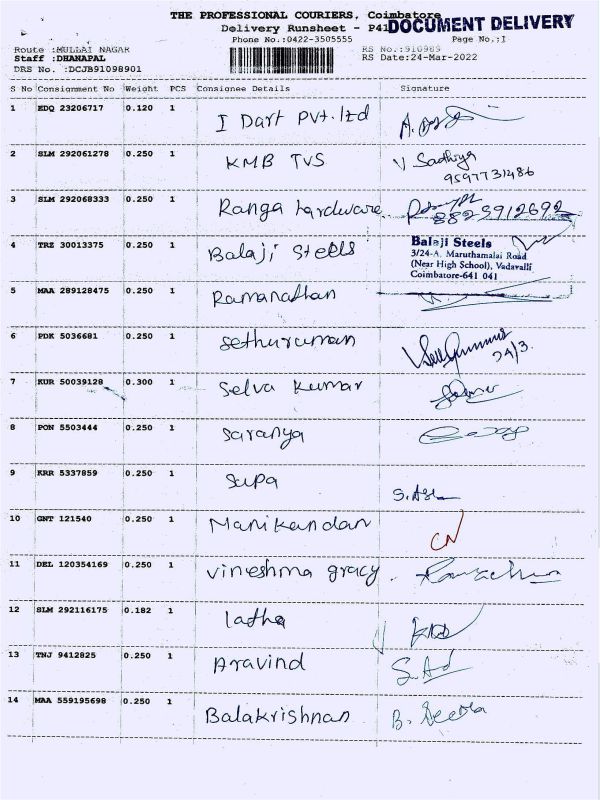 THE PROFESSIONAL COURIERS, Coimbatore
DOCUMENT DELIVERY
Delivery Runsheet - P41
Phone No.:0422-3505555 Page No.:1
Route :MULLAI NAGAR RS No.:910989
Staff :DHANAPAL RS Date:24-Mar-2022
DRS No. :DCJB91098901
S No Consignment No Weight PCS Consignee Details Signature
1 EDQ 23206717 0.120 1 I Dart Pvt.ltd
2 SLM 292061278 0.250 1 KMB TVS V Sadhiya
9597731486
3 SLM 292068333 0.250 1 Ranga hardware 8825912692
4 TRZ 30013375 0.250 1 Balaji Steels Balaji Steels
3/24-A, Maruthamalai Road
(Near High School), Vadavalli
Coimbatore-641 041
5 MAA 289128475 0.250 1 Ramanathan
6 PDK 5036681 0.250 1 Sethuraman
24/3.
7 KUR 50039128 0.300 1 Selva Kumar
8 PON 5503444 0.250 1 Saranya
9 KRR 5337859 0.250 1 Supa
10 GNT 121540 0.250 1 Manikandan CN
11 DEL 120354169 0.250 1 vineshma gracy.
12 SLM 292116175 0.182 1 latha
13 TNJ 9412825 0.250 1 Aravind
14 MAA 559195698 0.250 1 Balakrishnan